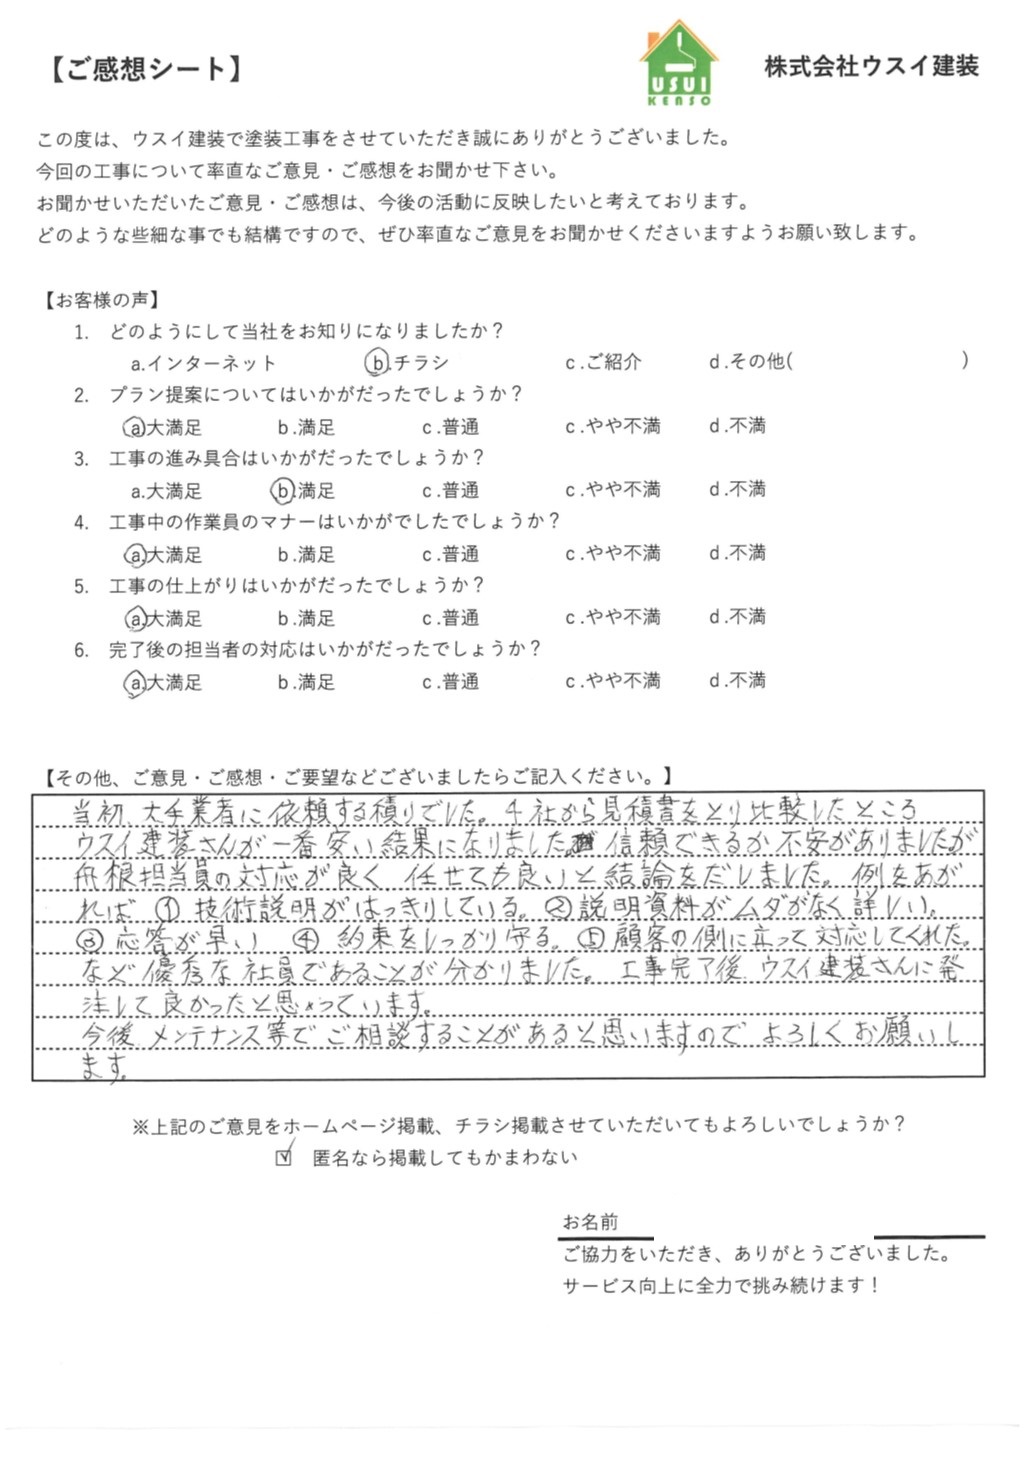 【ご感想シート】
USUI
KENSO
株式会社ウスイ建装
この度は、ウスイ建装で塗装工事をさせていただき誠にありがとうございました。
今回の工事について率直なご意見・ご感想をお聞かせ下さい。
お聞かせいただいたご意見・ご感想は、今後の活動に反映したいと考えております。
どのような些細な事でも結構ですので、ぜひ率直なご意見をお聞かせくださいますようお願い致します。
【お客様の声】
1. どのようにして当社をお知りになりましたか？
a.インターネット b.チラシ c.ご紹介 d.その他( )
2. プラン提案についてはいかがだったでしょうか？
a.大満足 b.満足 c.普通 c.やや不満 d.不満
3. 工事の進み具合はいかがだったでしょうか？
a.大満足 b.満足 c.普通 c.やや不満 d.不満
4. 工事中の作業員のマナーはいかがでしたでしょうか？
a.大満足 b.満足 c.普通 c.やや不満 d.不満
5. 工事の仕上がりはいかがだったでしょうか？
a.大満足 b.満足 c.普通 c.やや不満 d.不満
6. 完了後の担当者の対応はいかがだったでしょうか？
a.大満足 b.満足 c.普通 c.やや不満 d.不満
【その他、ご意見・ご感想・ご要望などございましたらご記入ください。】
当初、大手業者に依頼する積りでした。4社から見積書をとり比較したところ
ウスイ建装さんが一番安い結果になりました。信頼できるか不安がありましたが
飛根担当員の対応が良く 任せても良いと結論をだしました。例をあが
れば ① 技術説明がはっきりしている。②説明資料がムダがなく詳しい。
③ 応答が早い ④ 約束をしっかり守る。⑤ 顧客の側に立って対応してくれた。
など優秀な社員であることが分かりました。工事完了後、ウスイ建装さんに発
注して良かったと思っています。
今後 メンテナンス等でご相談することがあると思いますので よろしくお願いし
ます。
※上記のご意見をホームページ掲載、チラシ掲載させていただいてもよろしいでしょうか？
☑ 匿名なら掲載してもかまわない
お名前
ご協力をいただき、ありがとうございました。
サービス向上に全力で挑み続けます！